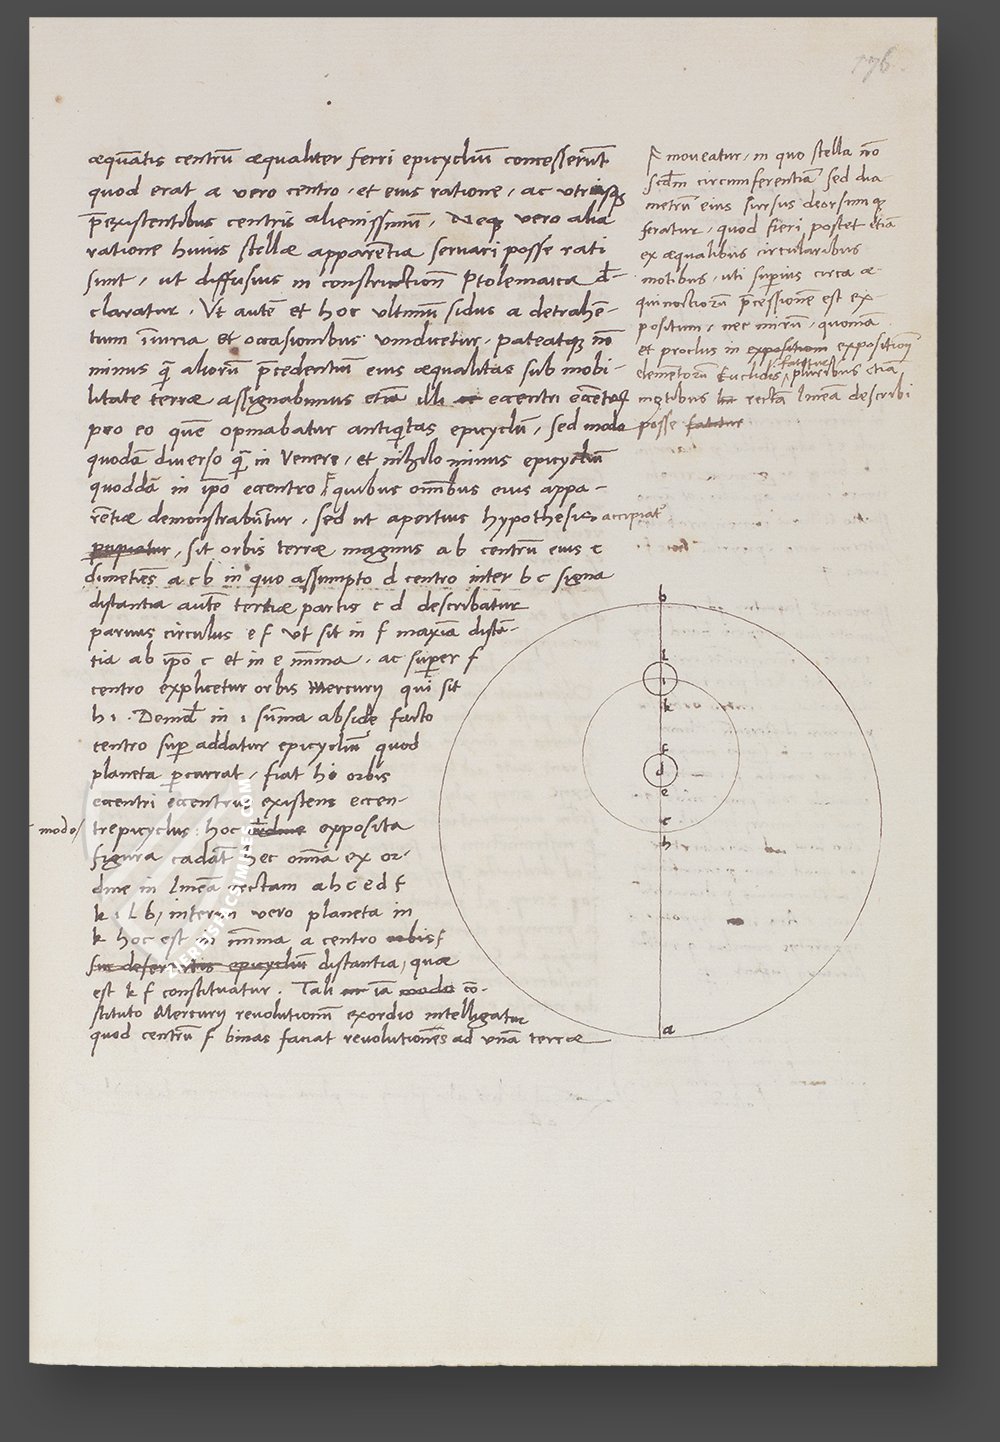 176
æquãtis centrũ æqualiter ferri epicycliũ concesserũt
quod erat a vero centro, et eius ratione, ac utriusq
p̄existentibus centris alienissimũ. Neq vero alia
ratione huius stellæ apparẽtia seruari posse rati
sunt, ut diffusius in constructionẽ Ptolemaica d̄-
claratur. Ut autẽ et hoc ultimũ sidus a detrahẽ-
tium iniuria et occasionibus vindicetur, pateatq nõ
minus q̄ aliorũ p̄cedentiũ eius æqualitas sub mobi-
litate terræ assignabimus etiã illi eccentri eccẽtrũ
pro eo quẽ opinabatur antiq̃tas epicyclũ, sed modo
quodã diuerso q̄ in Venere, et nihilo minus epicycliũ
quoddã in ip̃o eccentro F quibus omĩbus eius appa-
rẽtiæ demonstrabũtur, sed ut apertius hypothesis accipiat̃
, sit orbis terræ magnus a b centrũ eius c
dimetiẽs a c b in quo assumpto d centro inter b c signa
distantia autẽ tertiæ partis c d describatur
paruus circulus e f ut sit in f maxiã distã-
tia ab ip̃o c et in e mĩma. ac super f
centro explicetur orbis Mercurij qui sit
h i. Deinđ in i sũma abside facto
centro sup addatur epicycliũ quod
planeta p̱currat, fiat hi orbis
eccentri eccentrus existens eccen-
modo/ trepicyclus. hoc ordine exposita
figura cadãt hec omĩa ex or-
dine in lineã rectam a h c e d f
k i l b, interim vero planeta in
k hoc est in mĩma a centro orbis f
siue deferentis epicycliũ distantia, quæ
est k f constituatur. Tali iã modo cõ-
stituto Mercurij reuolutionũ exordio intelligatur
quod centrũ f binas faciat reuolutiones ad vnã terræ
F moueatur, in quo stella nõ
scđm circumferentiã sed dia
metrũ eius sursus deorsumq
feratur, quod fieri potest etiã
ex æqualibus circularibus
motibus, uti superius circa æ-
quinoctiorũ p̄cessionẽ est ex-
positum, nec mirũ, quoniã
et proclus in expositione expositionẽ
fatetur
elemẽtorũ Euclidis pluribus etiã
motibus rectã lineã describi
posse fatetur
b
l
i
k
f
d
e
c
h
a
ZIEREISFACSIMILES.COM